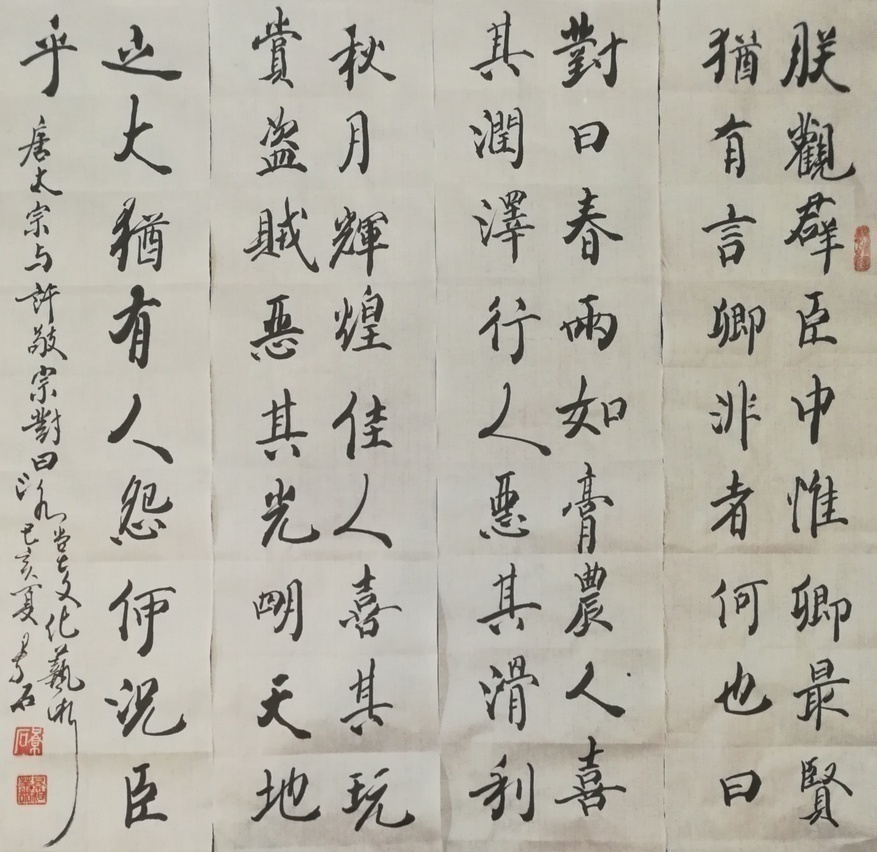 朕觀群臣中惟卿最賢
猶有言卿非者何也曰
對曰春雨如膏農人喜
其潤澤行人惡其滑利
秋月輝煌佳人喜其玩
賞盜賊惡其光明天地
之大猶有人怨何況臣
乎
唐太宗与許敬宗對曰
文化藝術
己亥夏 石